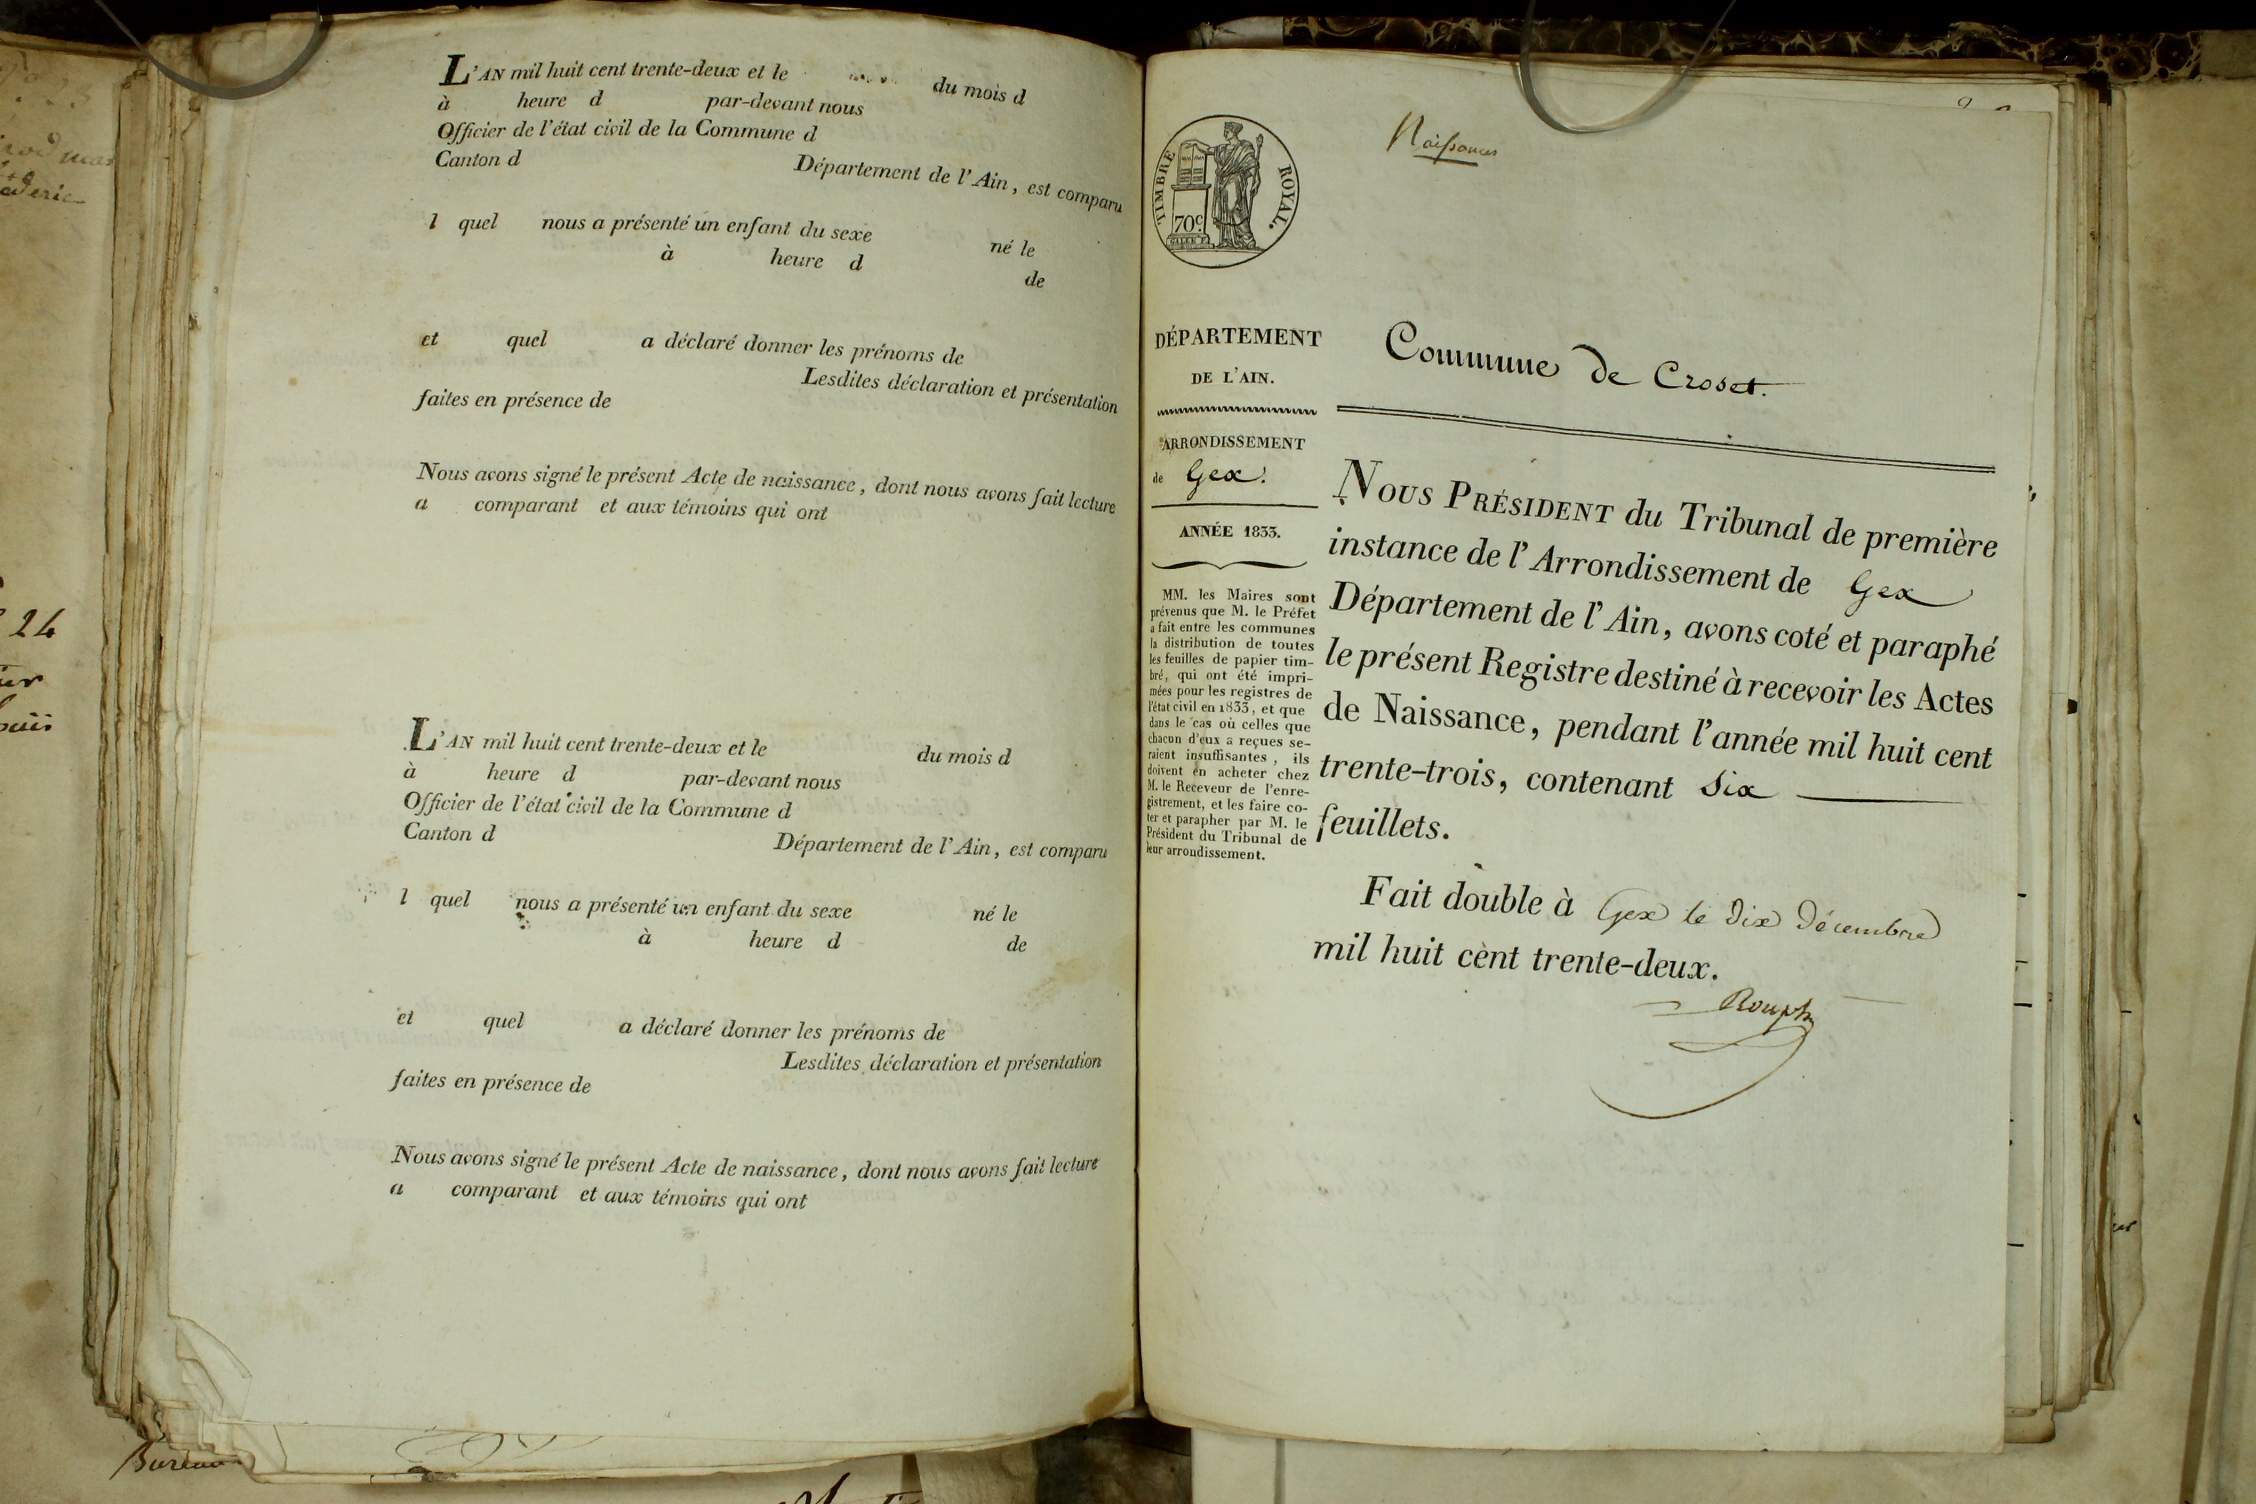 L'AN mil huit cent trente-deux et le du mois d
à heure d par-devant nous
Officier de l'état civil de la Commune d
Canton d Département de l'Ain, est comparu
l quel nous a présenté un enfant du sexe né le
à heure d de
et quel a déclaré donner les prénoms de
Lesdites déclaration et présentation
faites en présence de
Nous avons signé le présent Acte de naissance, dont nous avons fait lecture
a comparant et aux témoins qui ont
L'AN mil huit cent trente-deux et le du mois d
à heure d par-devant nous
Officier de l'état civil de la Commune d
Canton d Département de l'Ain, est comparu
l quel nous a présenté un enfant du sexe né le
à heure d de
et quel a déclaré donner les prénoms de
Lesdites déclaration et présentation
faites en présence de
Nous avons signé le présent Acte de naissance, dont nous avons fait lecture
a comparant et aux témoins qui ont
24
Bureau
Naissances
TIMBRE ROYAL.
70c.
DÉPARTEMENT
DE L'AIN.
ARRONDISSEMENT
de Gex.
ANNÉE 1833.
MM. les Maires sont
prévenus que M. le Préfet
a fait entre les communes
la distribution de toutes
les feuilles de papier tim-
bré, qui ont été impri-
mées pour les registres de
l'état civil en 1833, et que
dans le cas où celles que
chacun d'eux a reçues se-
raient insuffisantes, ils
doivent en acheter chez
M. le Receveur de l'enre-
gistrement, et les faire co-
ter et parapher par M. le
Président du Tribunal de
leur arrondissement.
Commune de Croset.
NOUS PRÉSIDENT du Tribunal de première
instance de l'Arrondissement de Gex
Département de l'Ain, avons coté et paraphé
le présent Registre destiné à recevoir les Actes
de Naissance, pendant l'année mil huit cent
trente-trois, contenant Six
feuillets.
Fait double à Gex le Dix Décembre
mil huit cent trente-deux.